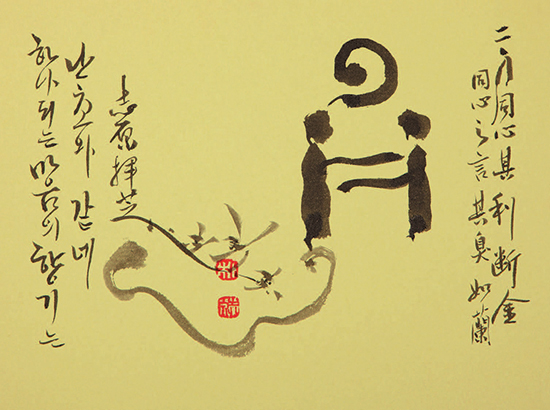 二人同心其利断金
同心之言其臭如蘭
하나되는 마음의 향기는
난초와 같네